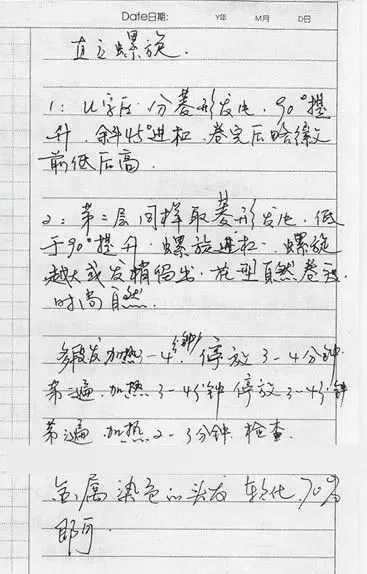 Date日期: Y年 M月 D日
直立螺旋.
1: U字区 分菱形发片. 90°提
升. 斜45°进杠. 卷完后
前低后高.
2: 第二层同样取菱形发片. 低
于90°提升. 螺旋进杠. 螺旋
越大或发梢留出. 花型自然卷致.
时尚自然.
发加热3-4分钟 停放3-4分钟
第二遍. 加热3-4分钟 停放3-4分钟
第三遍. 加热2-3分钟. 检查.
金属染色的头发 软化70%
即可.